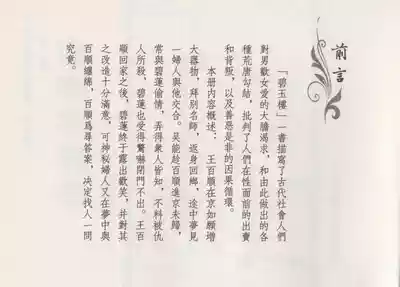 前言
「碧玉樓」一書描寫了古代社會人們
對男歡女愛的大膽渴求，和由此做出的各
種荒唐勾結，批判了人們在性面前的出賣
和背叛，以及善惡是非的因果循環。
本册内容概述：王百順在京如願增
大器物，拜別名師，返身回鄉，途中夢見
一婦人與他交合。吴能趁百順進京未歸，
常與碧蓮偷情，弄得衆人皆知，不料被仇
人所殺，碧蓮也受得驚嚇閉門不出。王百
順回家之後，碧蓮終于露出歡笑，并對其
之改造十分滿意，可神秘婦人又在夢中與
百順纏綿，百順爲尋答案，决定找人一問
究竟。